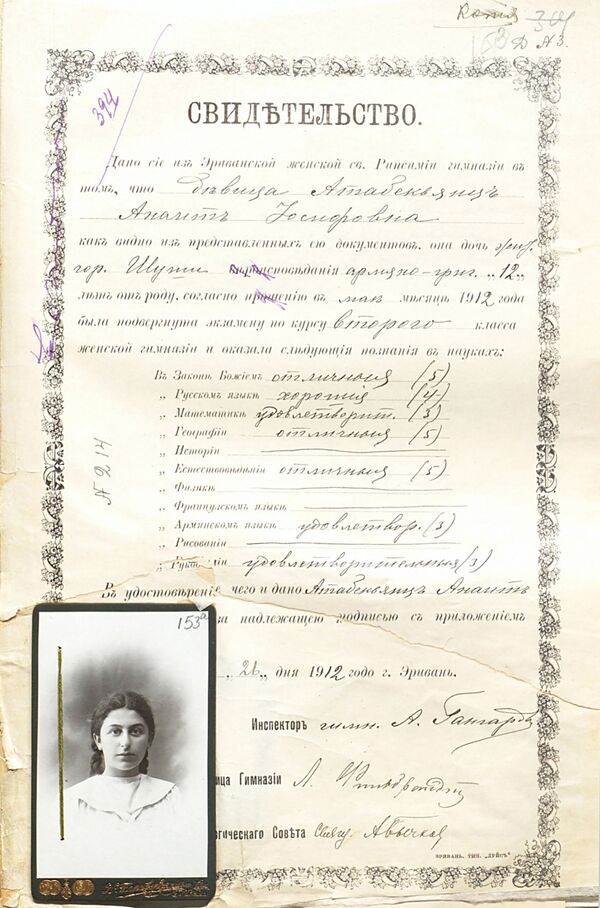 Копія
153 Д № 3.
394
СВИДѢТЕЛЬСТВО.
Дано сіе изъ Эриванской женской св. Рипсиміи гимназіи въ
томъ, что дѣвица Атабекьянцъ
Анаитъ Іосифовна
какъ видно изъ представленныхъ ею документовъ, она дочь
гор. Шуши вѣроисповѣданія армяно-григ. „12„
лѣтъ отъ роду, согласно прошенію въ маѣ мѣсяцѣ 1912 года
была подвергнута экзамену по курсу второго класса
женской гимназіи и оказала слѣдующія познанія въ наукахъ:
Въ Законѣ Божіемъ отличныя (5)
„ Русскомъ языкѣ хорошія (4)
„ Математикѣ удовлетворит. (3)
„ Географіи отличныя (5)
„ Исторіи
„ Естествовѣдѣніи отличныя (5)
„ Физикѣ
„ Французскомъ языкѣ
„ Армянскомъ языкѣ удовлетвор. (3)
„ Рисованіи
„ Рукодѣліи удовлетворительныя (3)
№ 214
Въ удостовѣреніе чего и дано Атабекьянцъ Анаитъ
за надлежащею подписью съ приложеніемъ
„ 26 „ дня 1912 года г. Эривань.
Инспекторъ гимн. А.
ница Гимназіи Л.
гическаго Совѣта Свящ.
ЭРИВАНЬ, ТИП. „ЛУЙСЪ"
153а